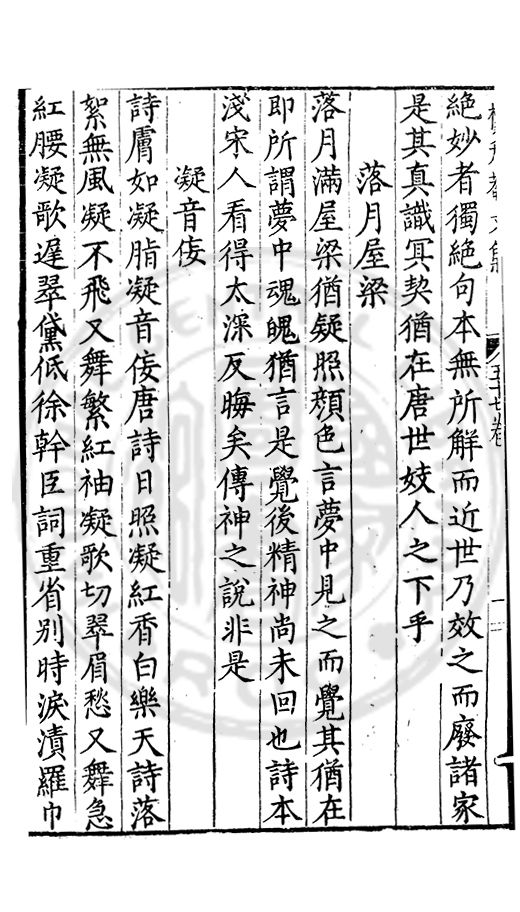 絶妙者獨絶句本無所解而近世乃效之而廢諸家
是其真識冥契猶在唐世妓人之下乎
落月屋梁
落月滿屋梁猶疑照顔色言夢中見之而覺其猶在
即所謂夢中魂魄猶言是覺後精神尚未回也詩本
淺宋人看得太深反晦矣傳神之說非是
凝音佞
詩膚如凝脂凝音佞唐詩日照凝紅香白樂天詩落
絮無風凝不飛又舞繁紅袖凝歌切翠眉愁又舞急
紅腰凝歌遲翠黛低徐幹臣詞重省別時淚漬羅巾